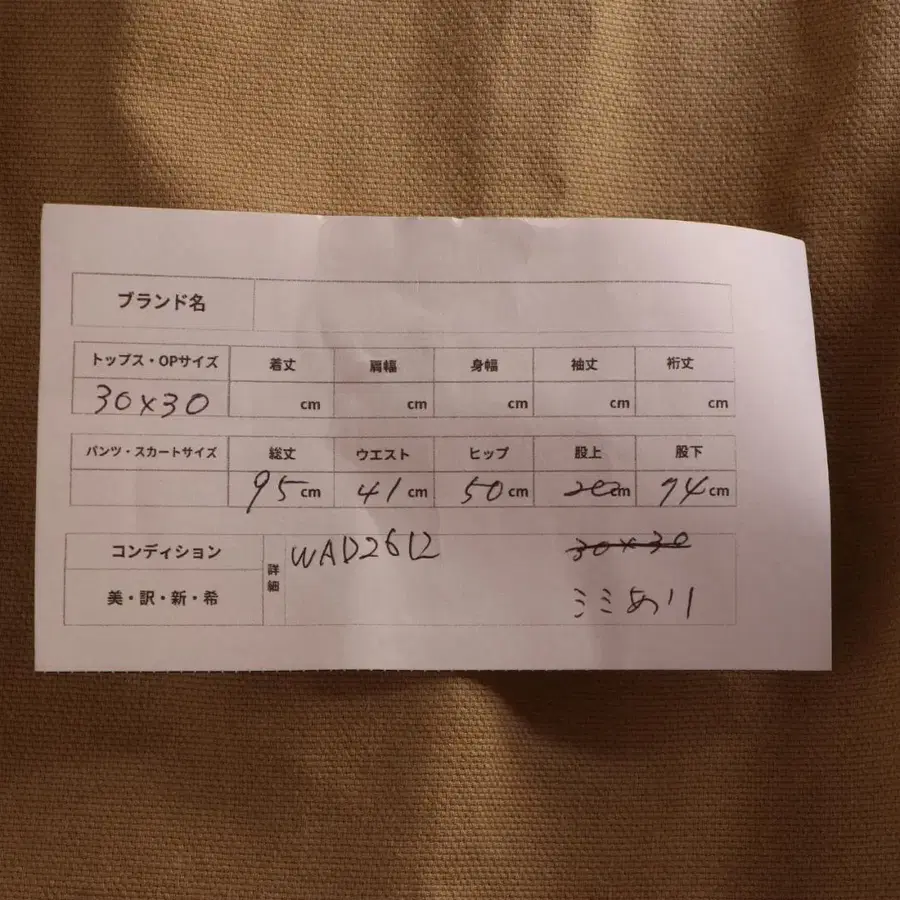 ブランド名
トップス・OPサイズ 着丈 肩幅 身幅 袖丈 裄丈
30×30 cm cm cm cm cm
パンツ・スカートサイズ 総丈 ウエスト ヒップ 股上 股下
95cm 41cm 50cm cm 74cm
コンディション 詳細 WAD2612 30×30
美・訳・新・希 ミミあり